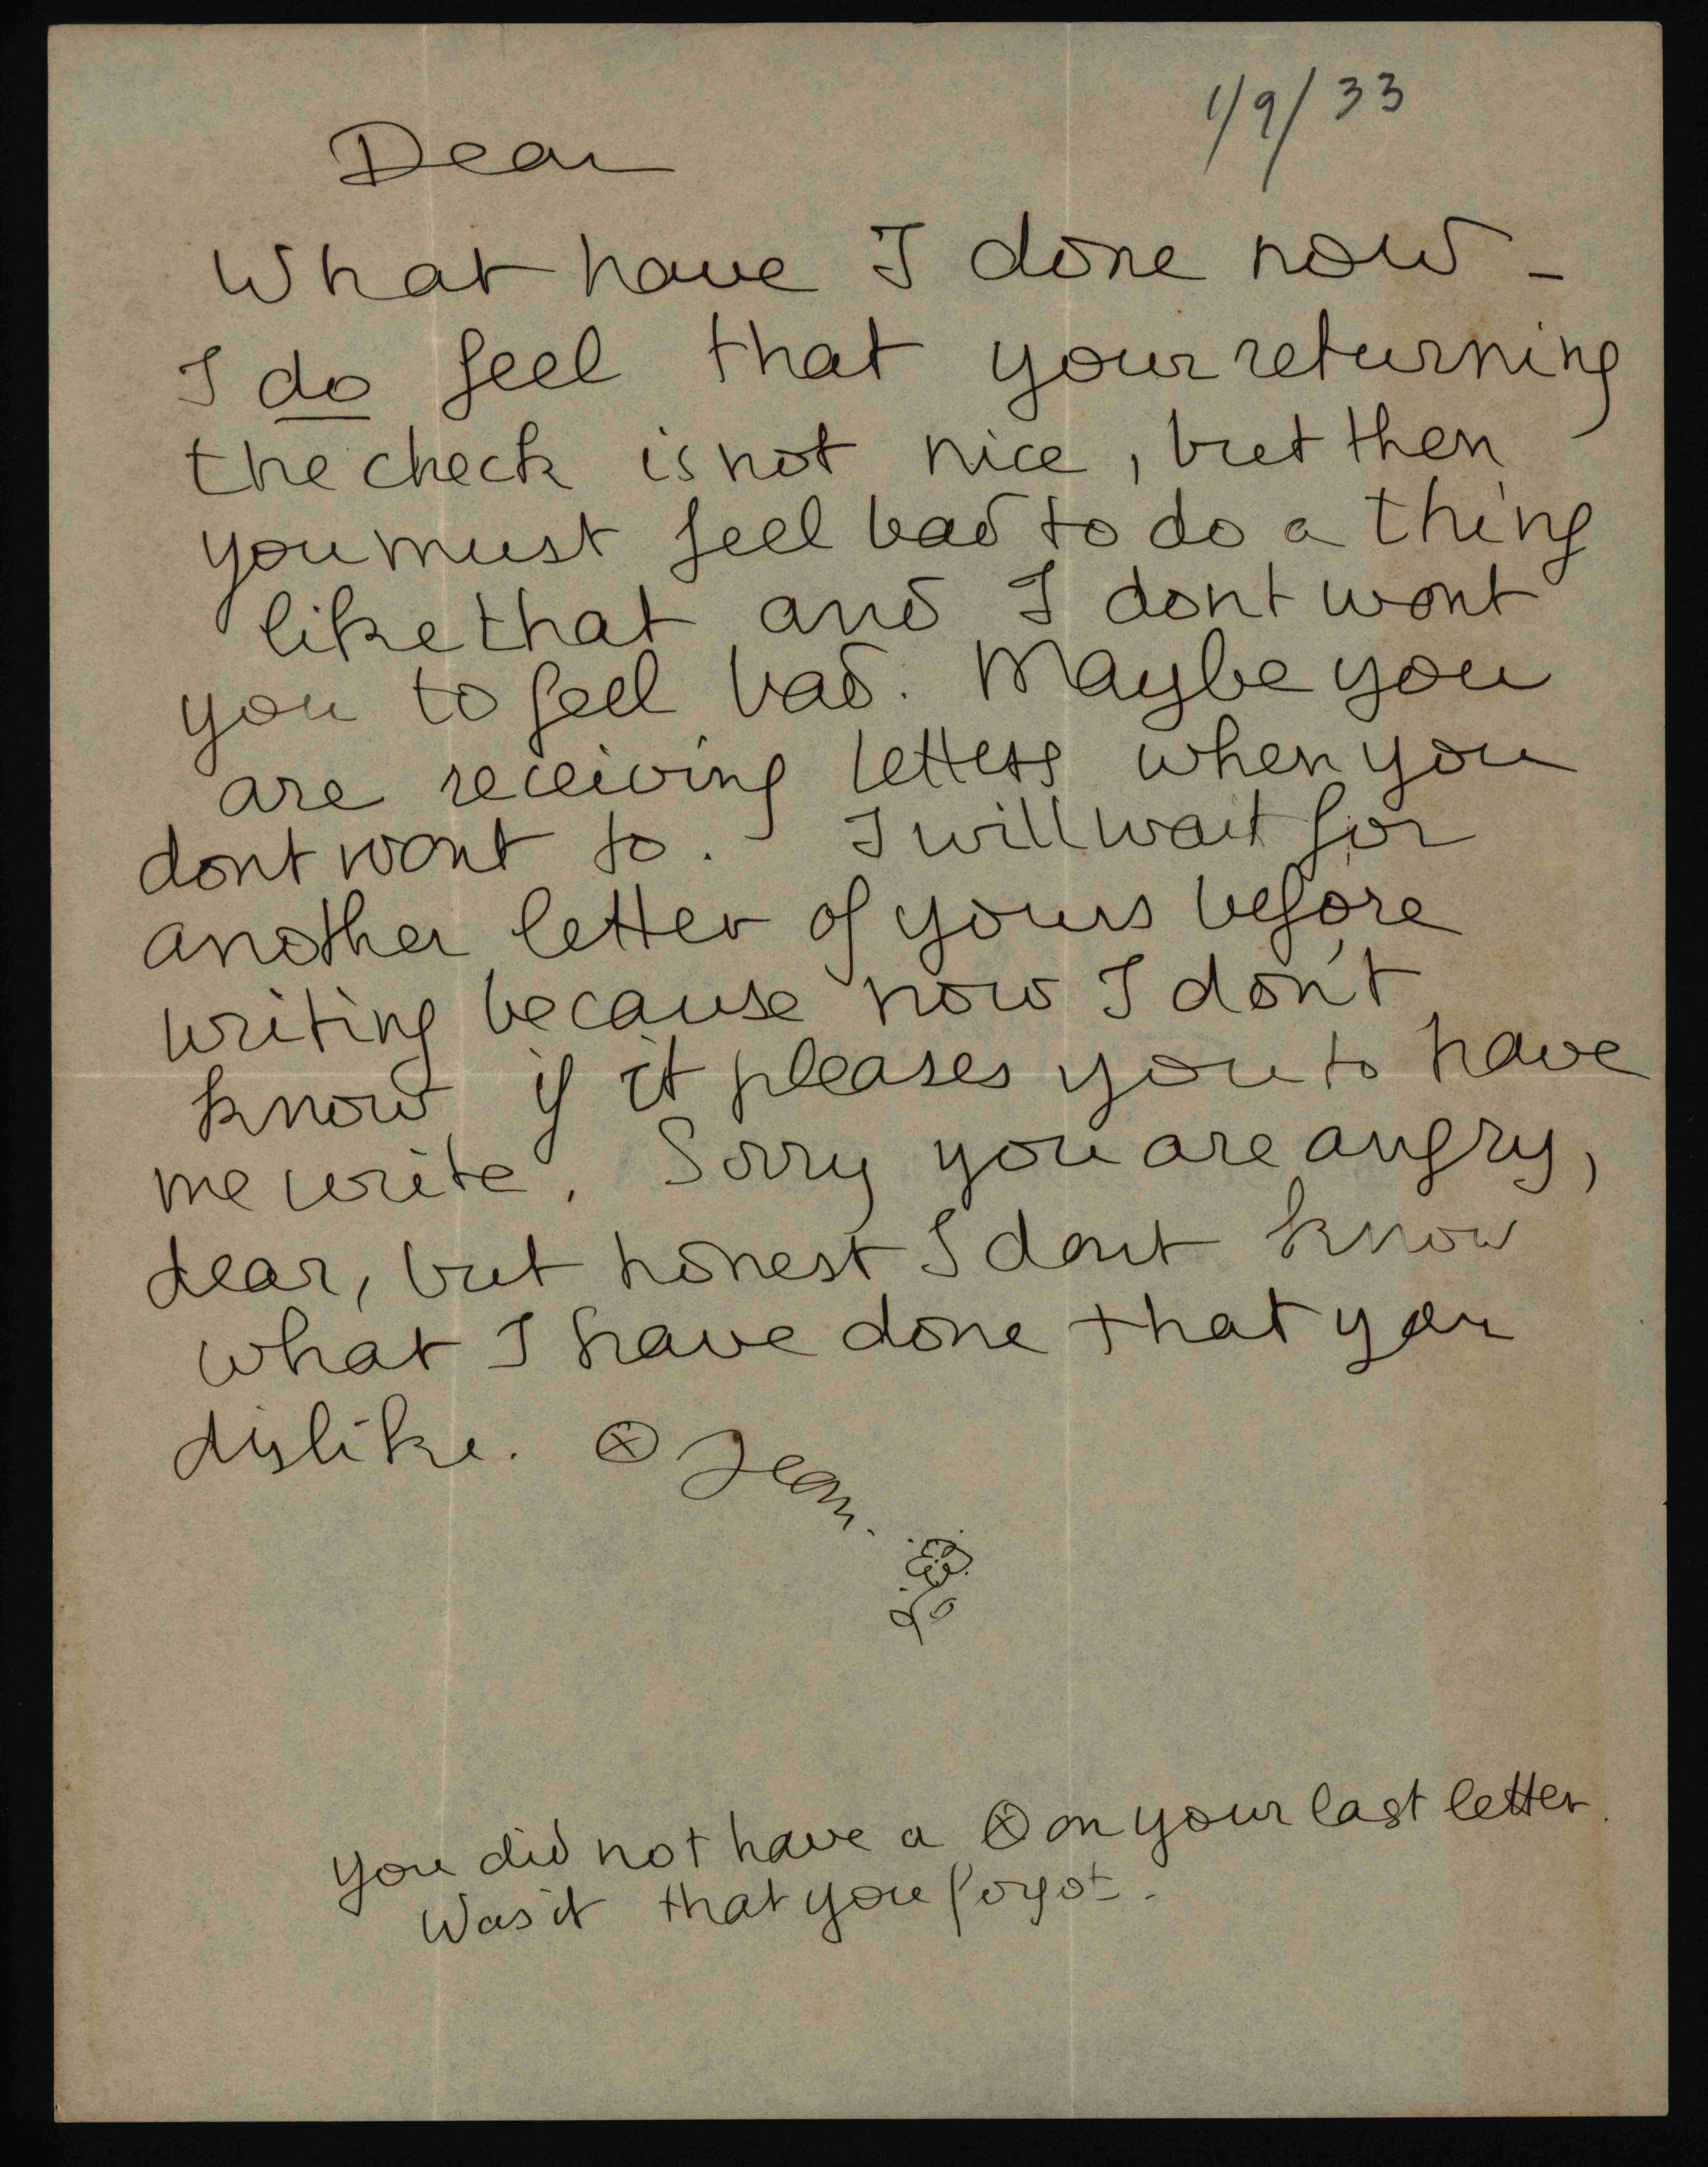 1/9/33
Dear
What have I done now -
I do feel that your returning
the check is not nice, but then
you must feel bad to do a thing
like that and I dont want
you to feel bad. Maybe you
are receiving letters when you
dont want to. I will wait for
another letter of yours before
writing because now I don't
know if it pleases you to have
me write. Sorry you are angry,
dear, but honest I dont know
what I have done that you
dislike. ⊗ Jean.
you did not have a ⊗ on your last letter.
Was it that you forgot.